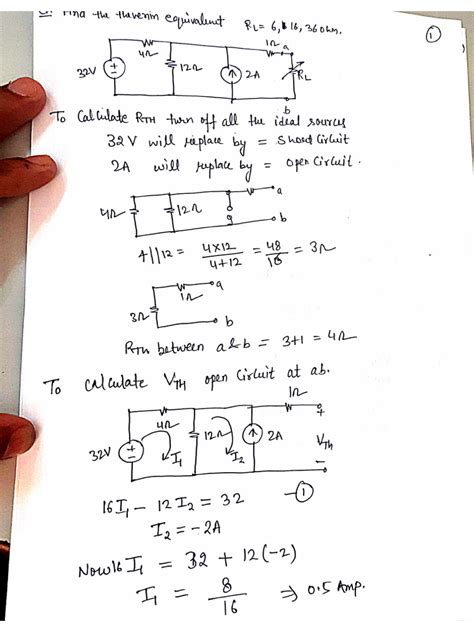 Q. Find the thevenin equivalent RL = 6, 16, 36 ohm.
1
4Ω 1Ω a
32V + - 12Ω 2A RL
b
To Calculate RTH turn off all the ideal sources
32V will replace by = Short Circuit
2A will replace by = Open Circuit.
a
4Ω 12Ω
b
4||12 = 4×12 / 4+12 = 48 / 16 = 3Ω
1Ω a
3Ω
b
RTH between a & b = 3+1 = 4Ω
To calculate VTH open Circuit at ab.
1Ω
4Ω +
32V + - I1 12Ω I2 2A VTh
-
16I1 - 12I2 = 32 -1
I2 = -2A
Now 16 I1 = 32 + 12(-2)
I1 = 8 / 16 ⇒ 0.5 Amp.